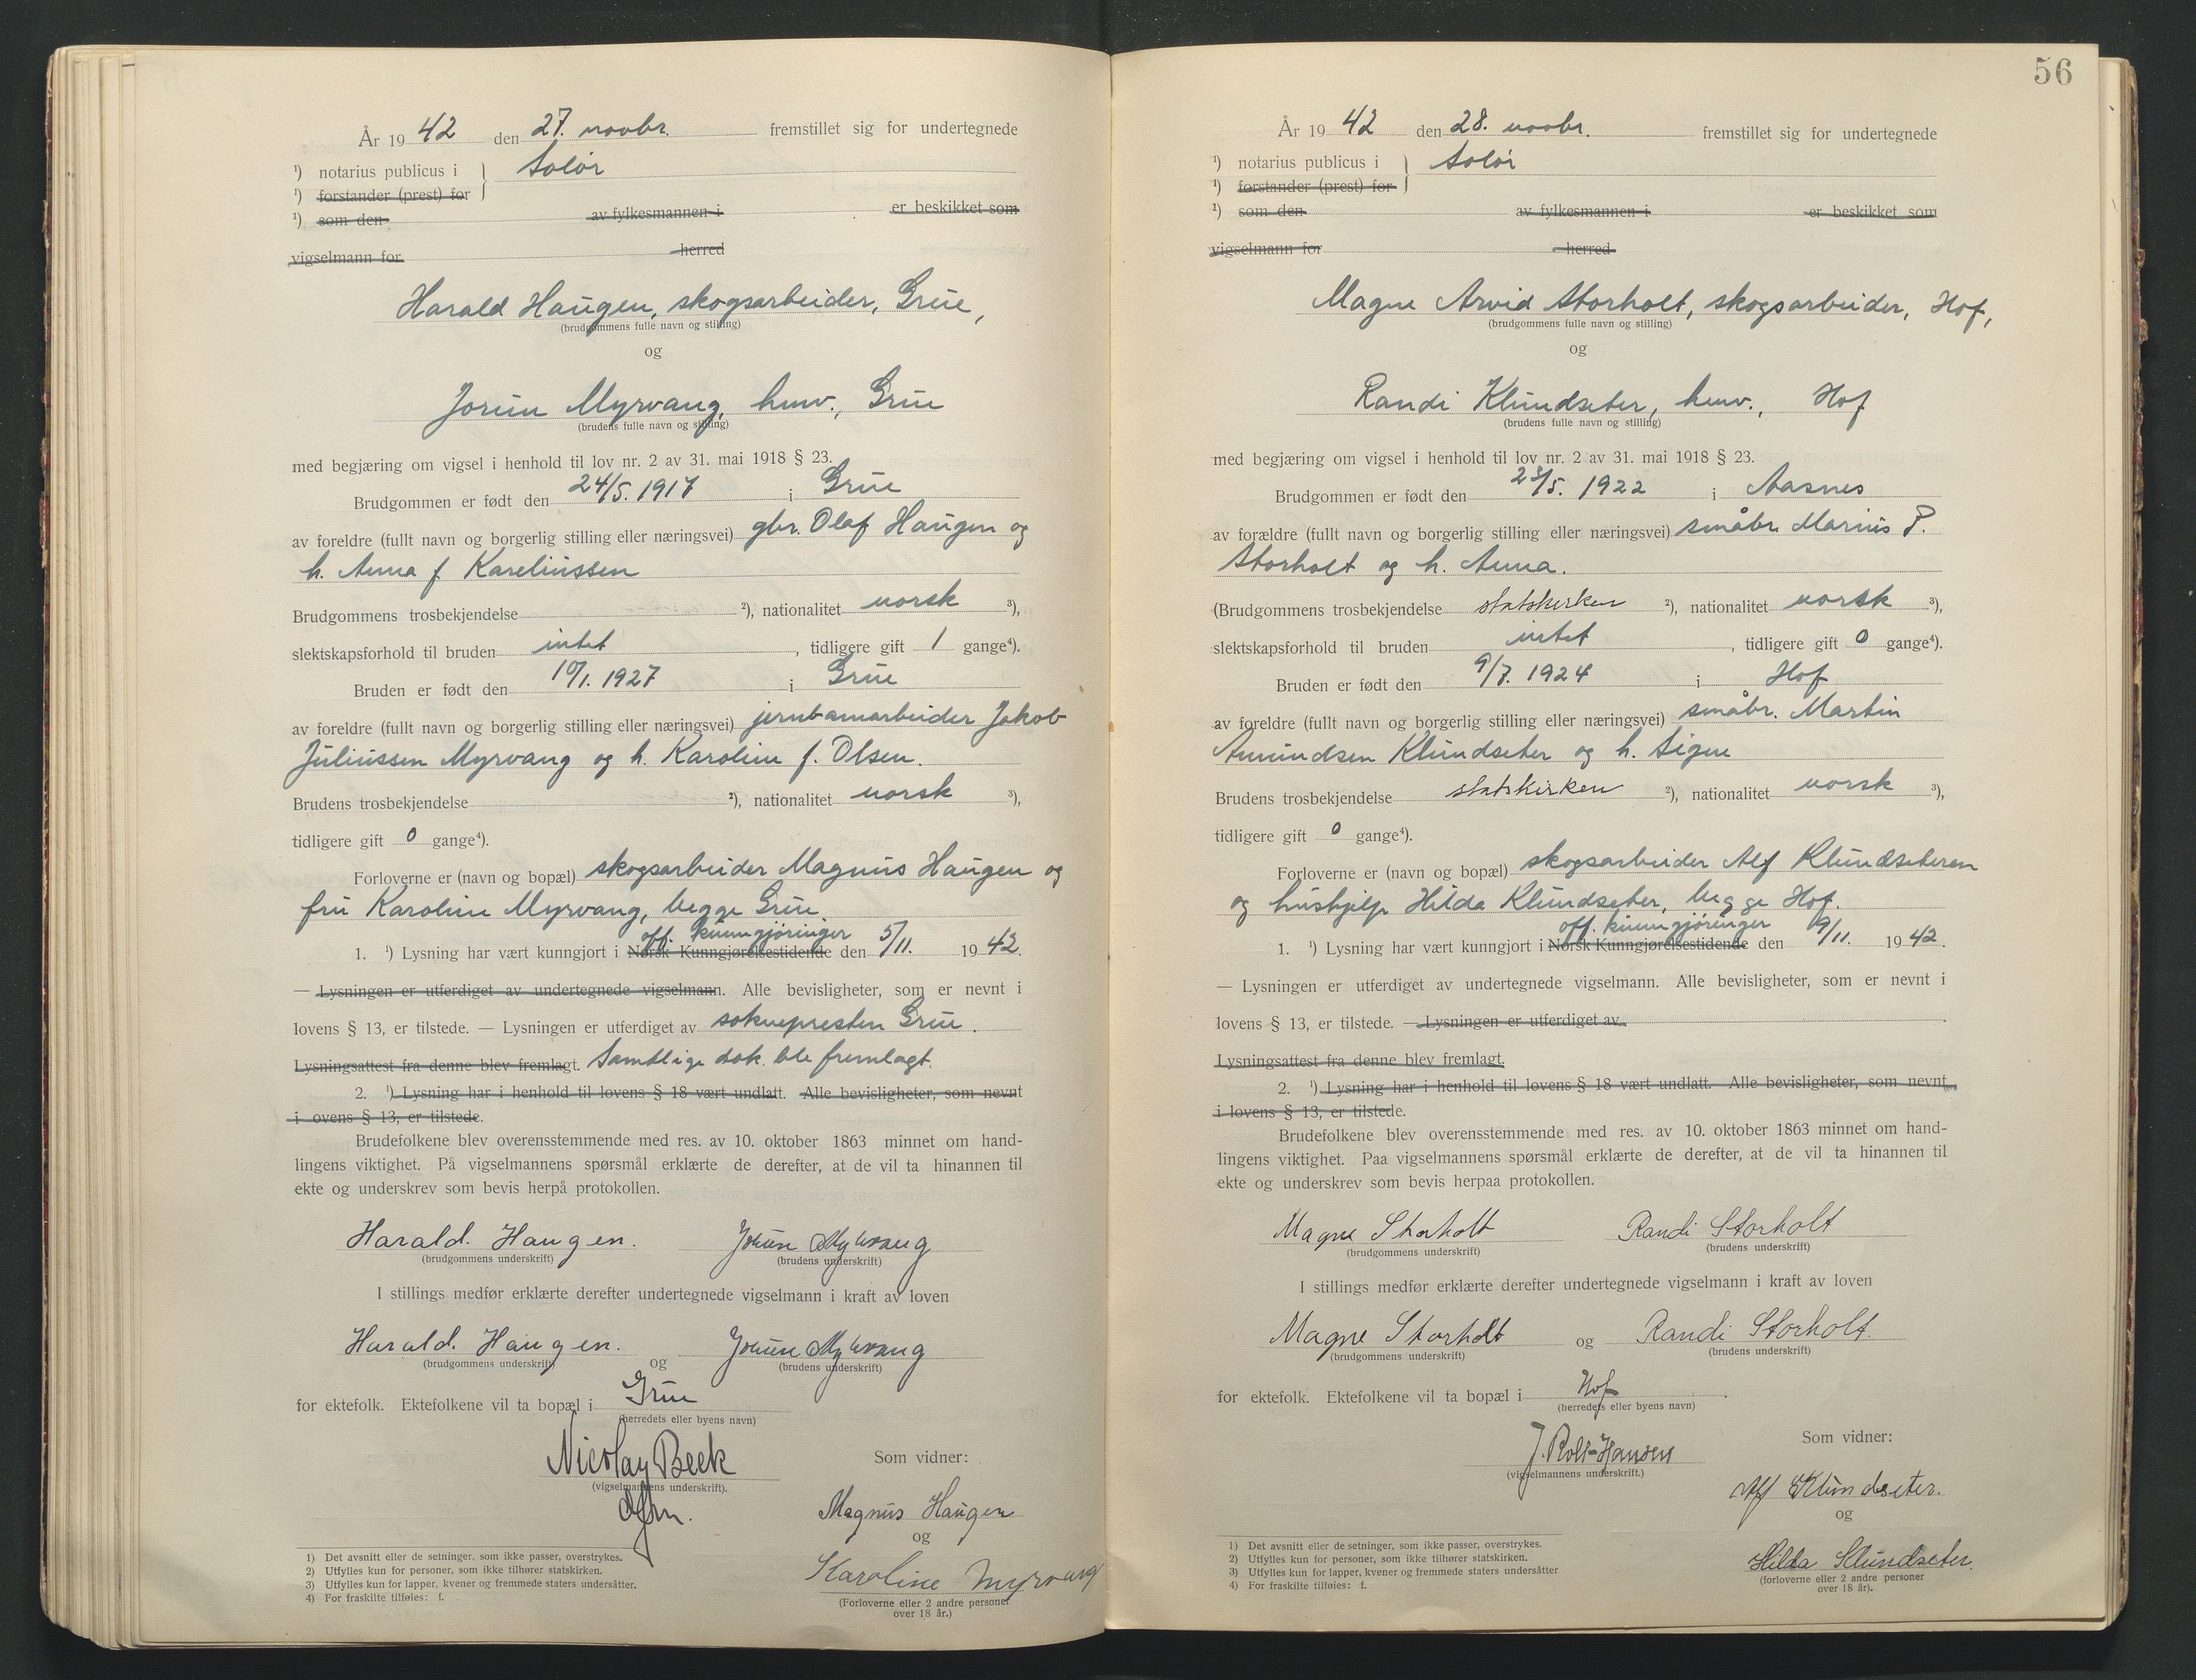 År 19 42 den 27. novbr. fremstillet sig for undertegnede
¹) notarius publicus i } Solør
¹) forstander (prest) for
¹) som den av fylkesmannen i er beskikket som
vigselmann for herred
Harald Haugen, skogsarbeider, Grue,
(brudgommens fulle navn og stilling)
og
Jorun Myrvang, husv., Grue
(brudens fulle navn og stilling)
med begjæring om vigsel i henhold til lov nr. 2 av 31. mai 1918 § 23.
Brudgommen er født den 24/5. 1917 i Grue
av foreldre (fullt navn og borgerlig stilling eller næringsvei) gbr. Olaf Haugen og
h. Anna f. Kareliussen
Brudgommens trosbekjendelse ²), nationalitet norsk ³),
slektskapsforhold til bruden intet , tidligere gift 1 gange⁴).
Bruden er født den 10/1. 1927 i Grue
av foreldre (fullt navn og borgerlig stilling eller næringsvei) jernbanearbeider Jakob
Juliussen Myrvang og h. Karoline f. Olsen.
Brudens trosbekjendelse ²), nationalitet norsk ³),
tidligere gift 0 gange⁴).
Forloverne er (navn og bopæl) skogsarbeider Magnus Haugen og
fru Karoline Myrvang, begge Grue.
off. kunngjøringer
1. ¹) Lysning har vært kunngjort i Norsk Kunngjørelsestidende den 5/11. 19 42.
— Lysningen er utferdiget av undertegnede vigselmann. Alle bevisligheter, som er nevnt i
lovens § 13, er tilstede. — Lysningen er utferdiget av soknepresten Grue.
Lysningsattest fra denne blev fremlagt. Samtlige dok. ble fremlagt.
2. ¹) Lysning har i henhold til lovens § 18 vært undlatt. Alle bevisligheter, som nevnt
i ovens § 13, er tilstede.
Brudefolkene blev overensstemmende med res. av 10. oktober 1863 minnet om hand-
lingens viktighet. På vigselmannens spørsmål erklærte de derefter, at de vil ta hinannen til
ekte og underskrev som bevis herpå protokollen.
Harald. Haugen. Jorun Myrvang
(brudgommens underskrift) (brudens underskrift)
I stillings medfør erklærte derefter undertegnede vigselmann i kraft av loven
Harald. Haugen. og Jorun Myrvang
(brudgommens underskrift) (brudens underskrift)
for ektefolk. Ektefolkene vil ta bopæl i Grue
(herredets eller byens navn)
Nicolay Beck
(vigselmannens underskrift).
Som vidner:
Magnus Haugen
og
Karoline Myrvang
(Forloverne eller 2 andre personer
over 18 år.)
1) Det avsnitt eller de setninger, som ikke passer, overstrykes.
2) Utfylles kun for personer, som ikke tilhører statskirken.
3) Utfylles kun for lapper, kvener og fremmede staters undersåtter.
4) For fraskilte tilføies: f.
56
År 19 42 den 28. novbr. fremstillet sig for undertegnede
¹) notarius publicus i } Solør
¹) forstander (prest) for
¹) som den av fylkesmannen i er beskikket som
vigselmann for herred
Magne Arvid Storholt, skogsarbeider, Hof,
(brudgommens fulle navn og stilling)
og
Randi Klundseter, husv., Hof
(brudens fulle navn og stilling)
med begjæring om vigsel i henhold til lov nr. 2 av 31. mai 1918 § 23.
Brudgommen er født den /5. 1922 i Aasnes
av forældre (fullt navn og borgerlig stilling eller næringsvei) småbr. Marius P.
Storholt og h. Anna.
(Brudgommens trosbekjendelse statskirken ²), nationalitet norsk ³),
slektskapsforhold til bruden intet , tidligere gift 0 gange⁴).
Bruden er født den 9/7. 1924 i Hof
av foreldre (fullt navn og borgerlig stilling eller næringsvei) småbr. Martin
Amundsen Klundseter og h. Signe
Brudens trosbekjendelse statskirken ²), nationalitet norsk ³),
tidligere gift 0 gange⁴).
Forloverne er (navn og bopæl) skogsarbeider Alf Klundseteren
og hushjelp Hilda Klundseter, begge Hof.
off. kunngjøringer
1. ¹) Lysning har vært kunngjort i Norsk Kunngjørelsestidende den 9/11. 19 42.
— Lysningen er utferdiget av undertegnede vigselmann. Alle bevisligheter, som er nevnt i
lovens § 13, er tilstede. — Lysningen er utferdiget av
Lysningsattest fra denne blev fremlagt.
2. ¹) Lysning har i henhold til lovens § 18 vært undlatt. Alle bevisligheter, som nevnt
i lovens § 13, er tilstede.
Brudefolkene blev overensstemmende med res. av 10. oktober 1863 minnet om hand-
lingens viktighet. Paa vigselmannens spørsmål erklærte de derefter, at de vil ta hinannen til
ekte og underskrev som bevis herpaa protokollen.
Magne Storholt Randi Storholt
(brudgommens underskrift) (brudens underskrift)
I stillings medfør erklærte derefter undertegnede vigselmann i kraft av loven
Magne Storholt og Randi Storholt.
(brudgommens underskrift) (brudens underskrift)
for ektefolk. Ektefolkene vil ta bopæl i Hof.
(herredets eller byens navn)
J. Roll-Hansen
(vigselmannens underskrift.)
Som vidner:
Alf Klundseter.
og
Hilda Klundseter.
(forloverne eller 2 andre personer
over 18 år).
1) Det avsnitt eller de setninger, som ikke passer, overstrykes.
2) Utfylles kun for personer, som ikke tilhører statskirken.
3) Utfylles kun for lapper, kvener og fremmede staters undersåtter
4) For fraskilte tilføies: f.